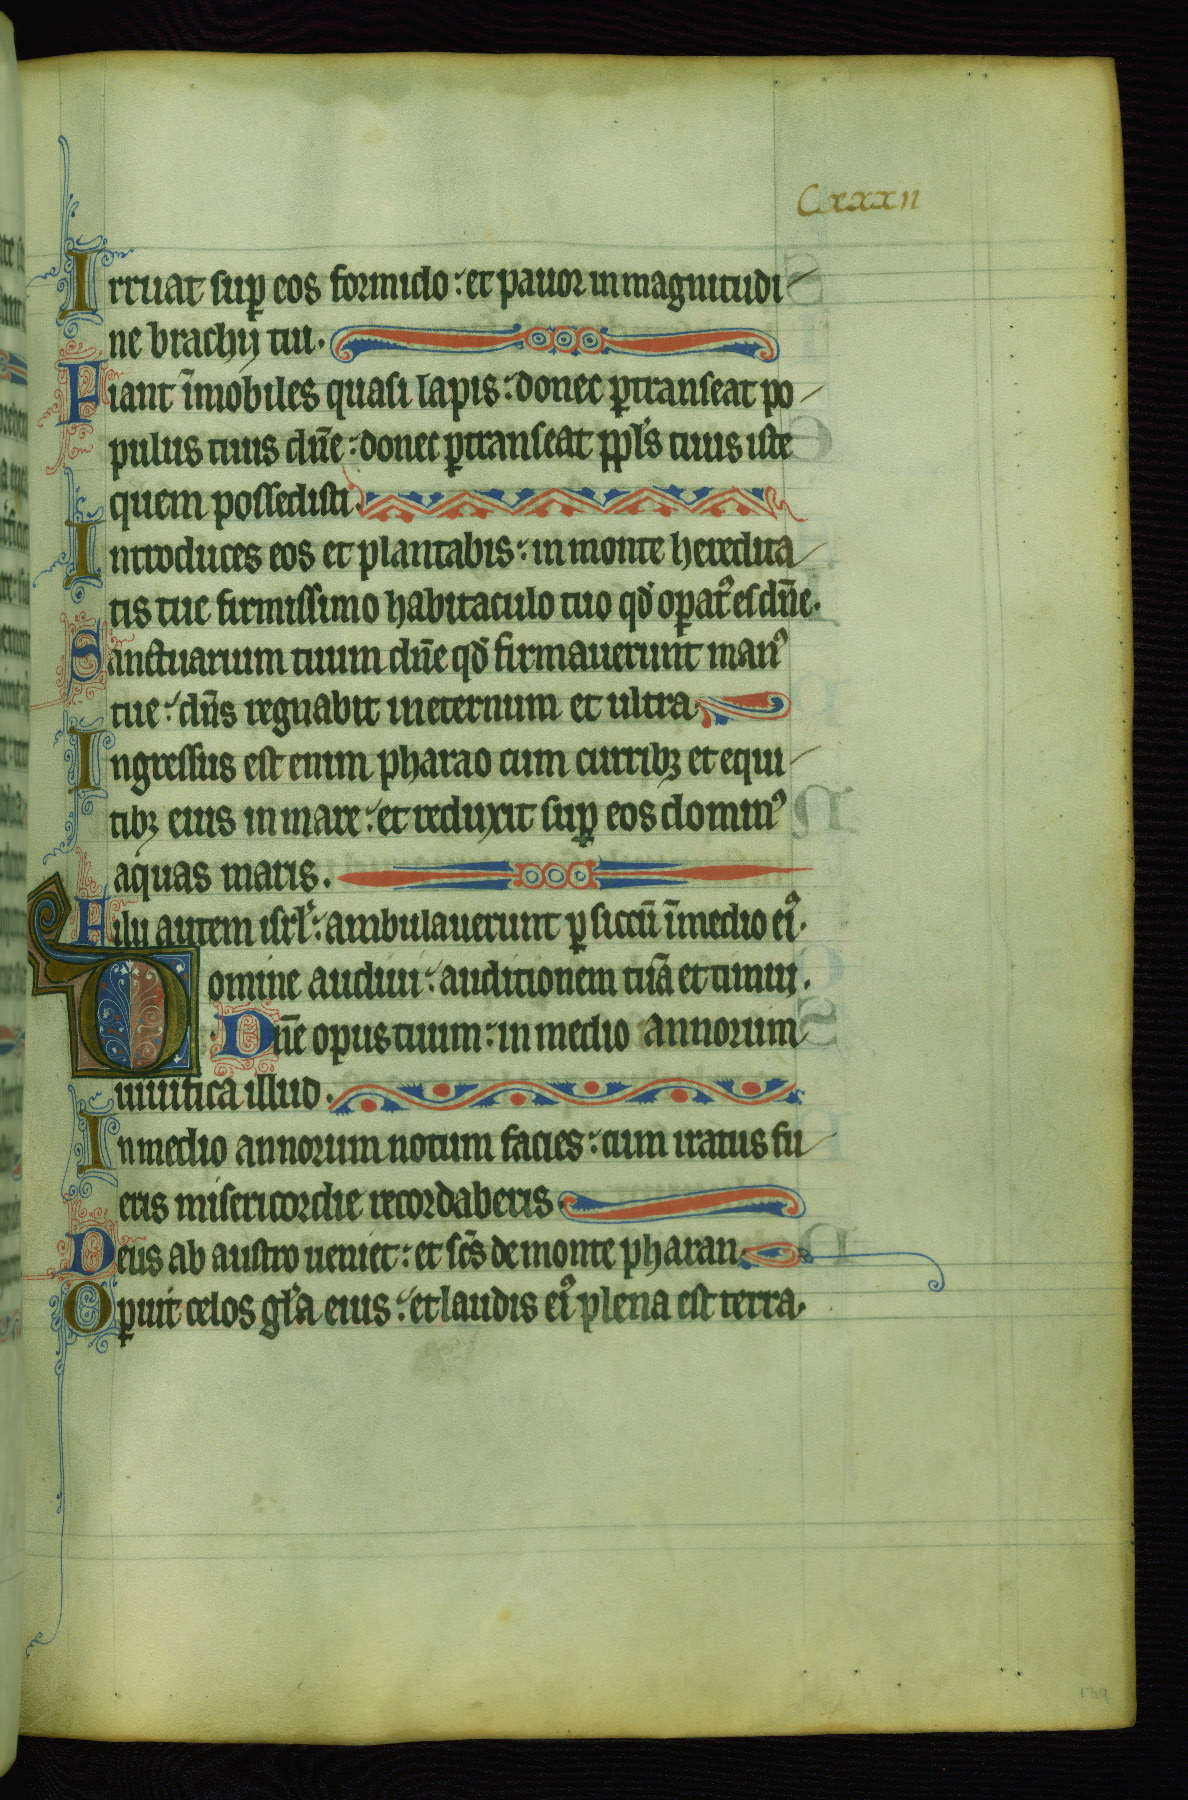 Cxxxii
Irruat sup̱ eos formido: et pauor in magnitudi
ne brachij tui.
Fiant ĩmobiles quasi lapis: donec ꝑtranseat po
pulus tuus dñe: donec ꝑtranseat ppl̃s tuus iste
quem possedisti.
Introduces eos et plantabis: in monte heredita
tis tue firmissimo habitaculo tuo qđ oꝑat᷒ es dñe.
Sanctuarium tuum dñe qđ firmauerunt man᷒
tue: dñs regnabit in eternum et ultra.
Ingressus est enim pharao cum curribꝫ et equi
tibꝫ eius in mare: et reduxit suꝑ eos domin᷒
aquas maris.
Filii autem isrl̃: ambulauerunt ꝑ siccũ ĩ medio ei᷒.
Domine audiui: auditionem tuã et timui.
Dñe opus tuum: in medio annorum
uiuifica illud.
In medio annorum notum facies: cum iratus fu
eris misericordie recordaberis.
Deus ab austro ueniet: et scs̃ de monte pharan.
Operuit celos gl̃a eius: et laudis ei᷒ plena est terra.
139